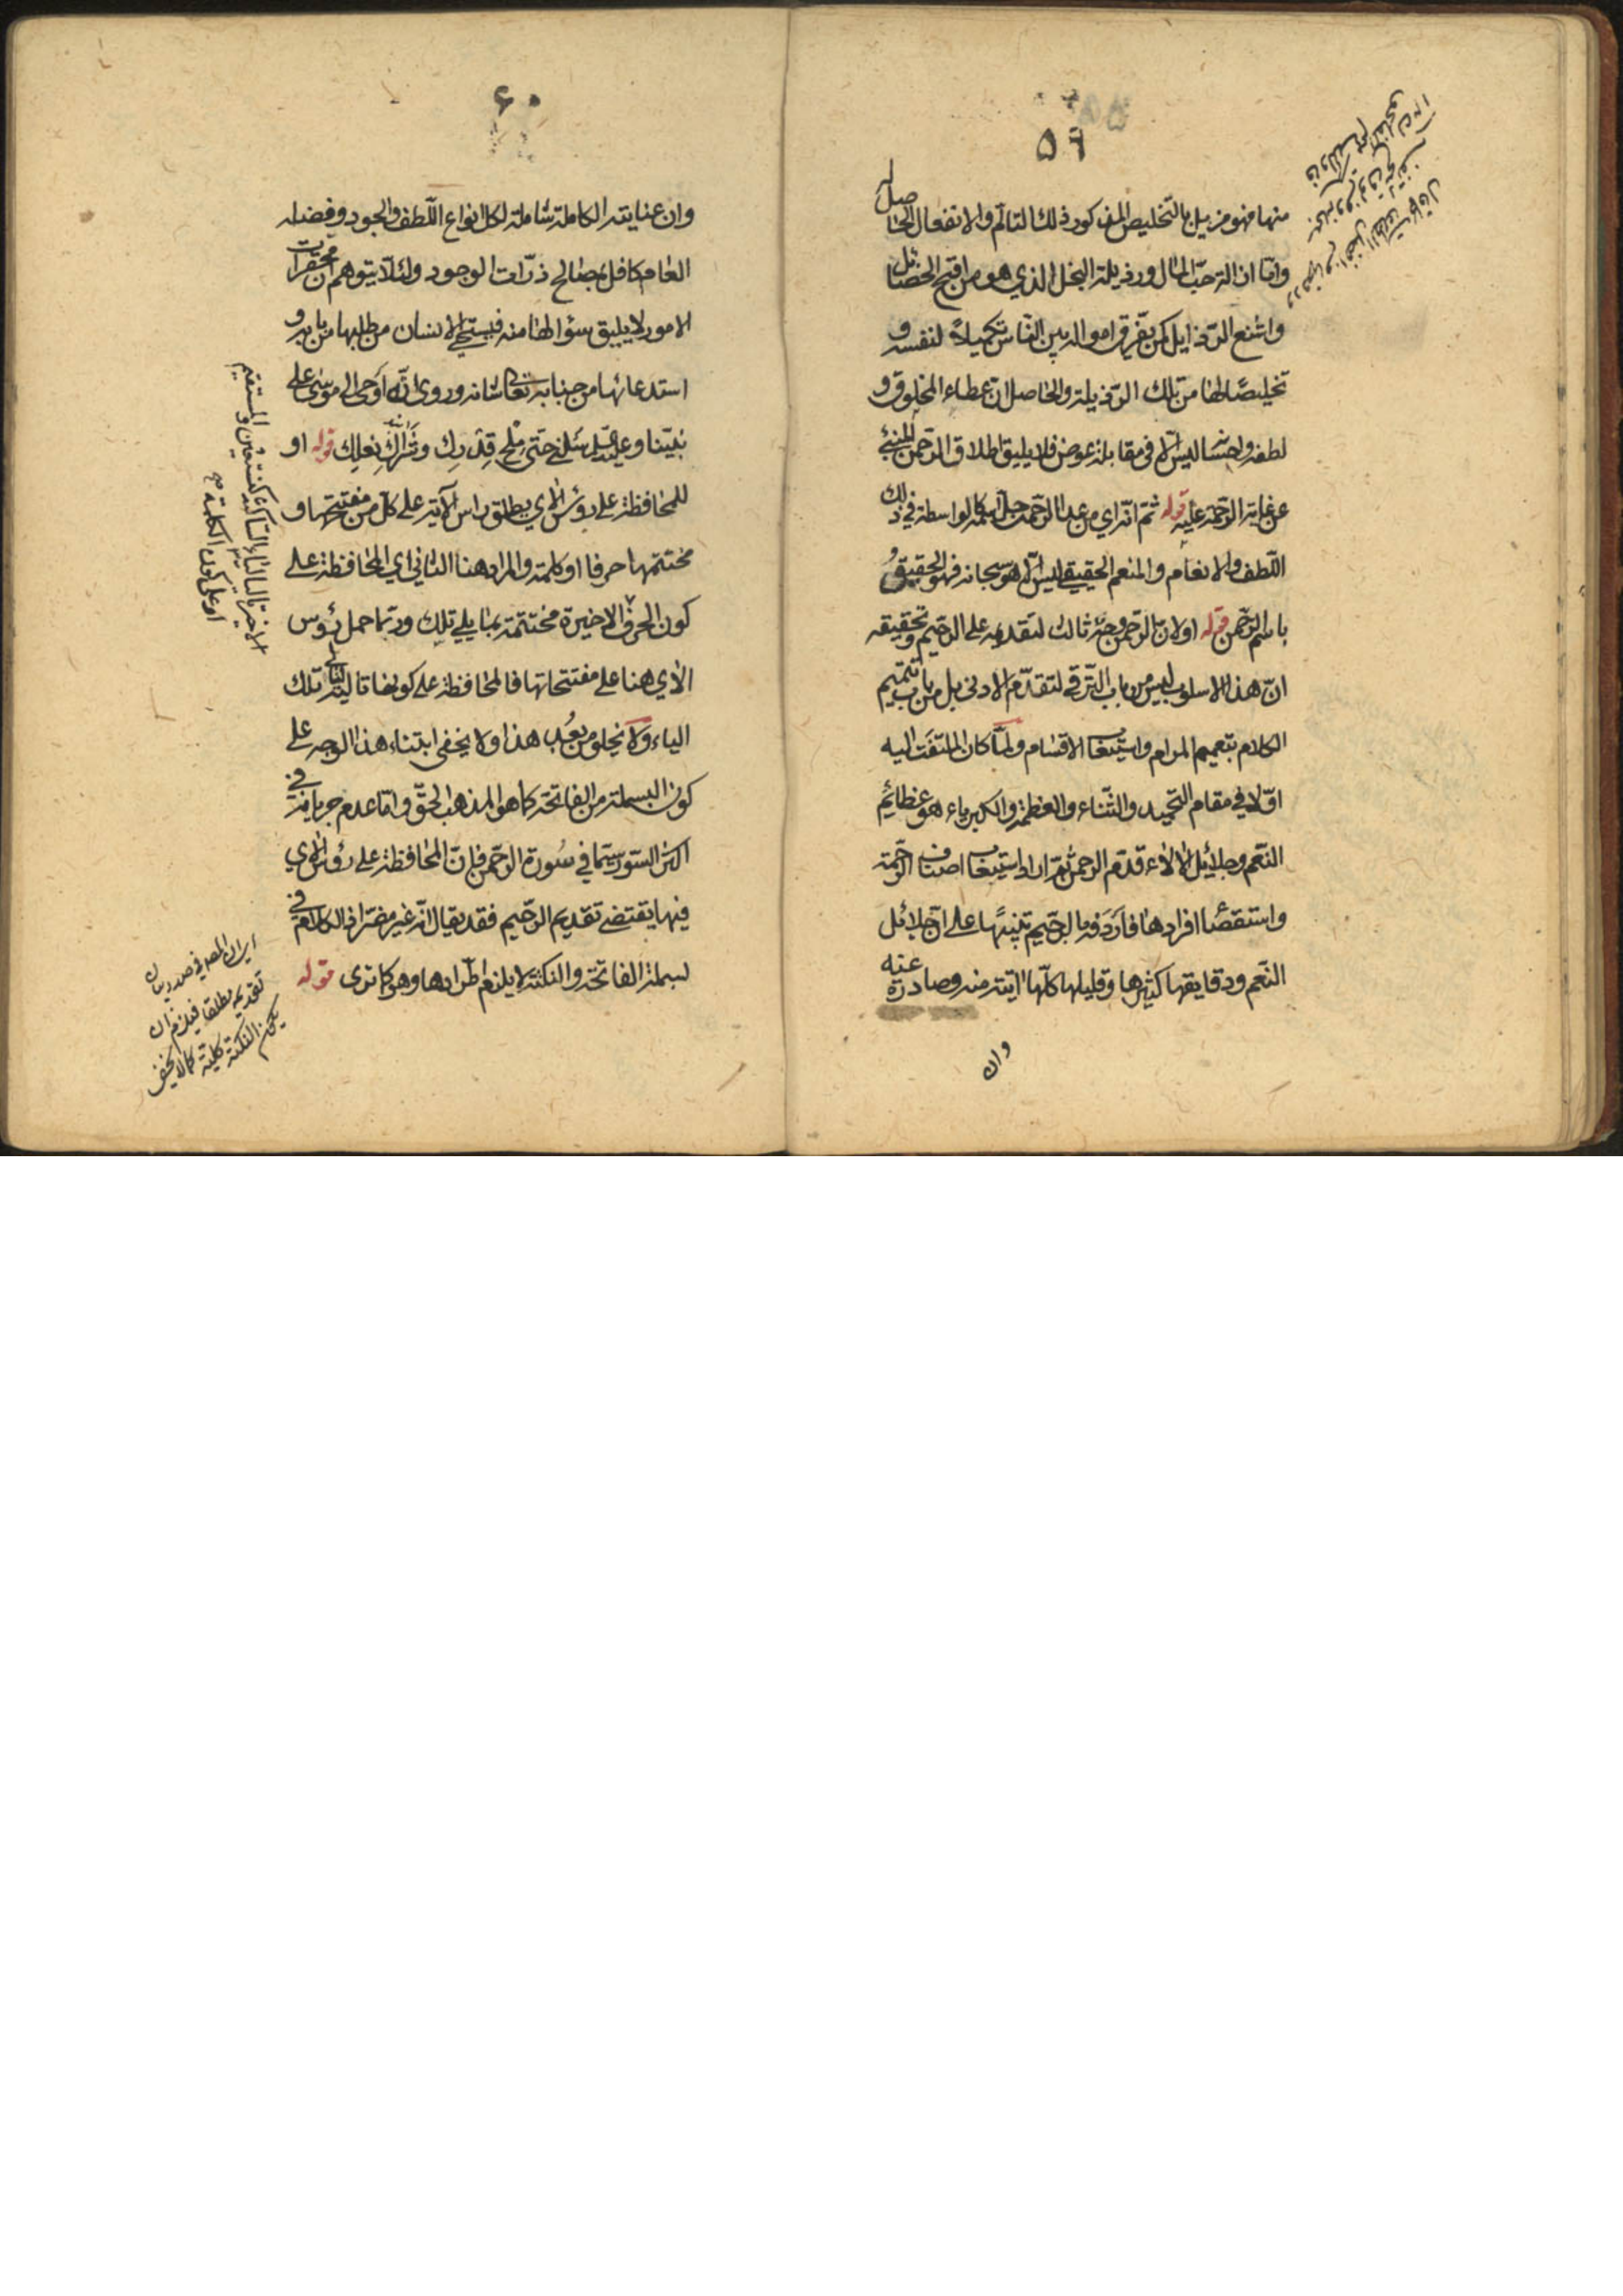 ٥٩
منها فهو مزيل بالتخليص المذكور ذلك التألم والانفعال الحاصل له
وامّا ازالة حبّ المال ورذيلة البخل الذي هو من اقبح الخصائل
واشنع الرّذايل كمن يفرّق امواله بين النّاس تكميلاً لنفسه و
تخليصًا لها من تلك الرّذيلة والحاصل ان عطاء المخلوق و
لطفه واحسانه ليس الّا في مقابلة عوض فلا يليق اطلاق الرّحمن المنبئ
عن غاية الرّحمة عليه قوله ثمّ انّه اي من عدا الرّحمن جلّ اسمه كالواسطة في ذلك
اللّطف والانعام والمنعم الحقيقي ليس الّا هو سبحانه فهو الحقيق
باسم الرّحمن قوله او لان الرّحمن وجه ثالث لتقديمه على الرّحيم وتحقيقه
انّ هذا الاسلوب ليس من باب التّرقي لتقدّم الادنى بل من باب تتميم
الكلام بتعميم المرام واستيعاب الاقسام ولمّا كان الملتفَت اليه
اوّلا في مقام التّحميد والثّناء والعظمة والكبرياء هو عظائم
النّعم وجلائل الالاء قدّم الرحمن ثمّ اراد استيعاب اصناف الرّحمة
واستقصاء افرادها فاردفه بالرّحيم تنبيهًا على انّ جلائل
النّعم ودقايقها كثيرها وقليلها كلّها آتية منه وصادرة عنه
وان
٦٠
وان عنايته الكاملة شاملة لكل انواع اللّطف والجود وفضله
العام كافل بمصالح ذرّات الوجود ولئلّا يتوهم ان محقرات
الامور لا يليق سؤالها منه فيستحي الانسان من طلبها من بابه و
استدعائها من جنابه تعالى شانه وروي انّه اوحى الى موسى على
نبيّنا وعليه السلام سلني حتى ملح قِدرك وشراك نعلك قوله او
للمحافظة على رؤس الآي يطلق راس الآية على كلّ من مفتتحها و
مختتمها حرفا او كلمة والمراد هنا الثاني اي المحافظة على
كون الحرف الاخيرة مختتمة بما يلي تلك وربّما حمل رؤس
الآي هنا على مفتتحاتها فالمحافظة على كونها تالية لتلك
الياء ولا يخلو من بُعد هذا ولا يخفى ابتناء هذا الوجه على
كون البسملة من الفاتحة كما هو المذهب الحقّ وامّا عدم جريانه في
اكثر السّور سيّما في سُورة الرّحمن فانّ المحافظة على رؤس الآي
فيها يقتضي تقديم الرّحيم فقد يقال انّه غير مضرّ اذ الكلام في
بسملة الفاتحة والنكتة لا يلزم اطّرادها وهو كما ترى قوله
الاخيرة تالية للياء الساكنة كنستعين والمستقيم
او على كون الكلمة
اي ان المصر في صدد بيان
تقديمه مطلقا فيلزم ان
يكون النكتة كلية كما لا يخفى